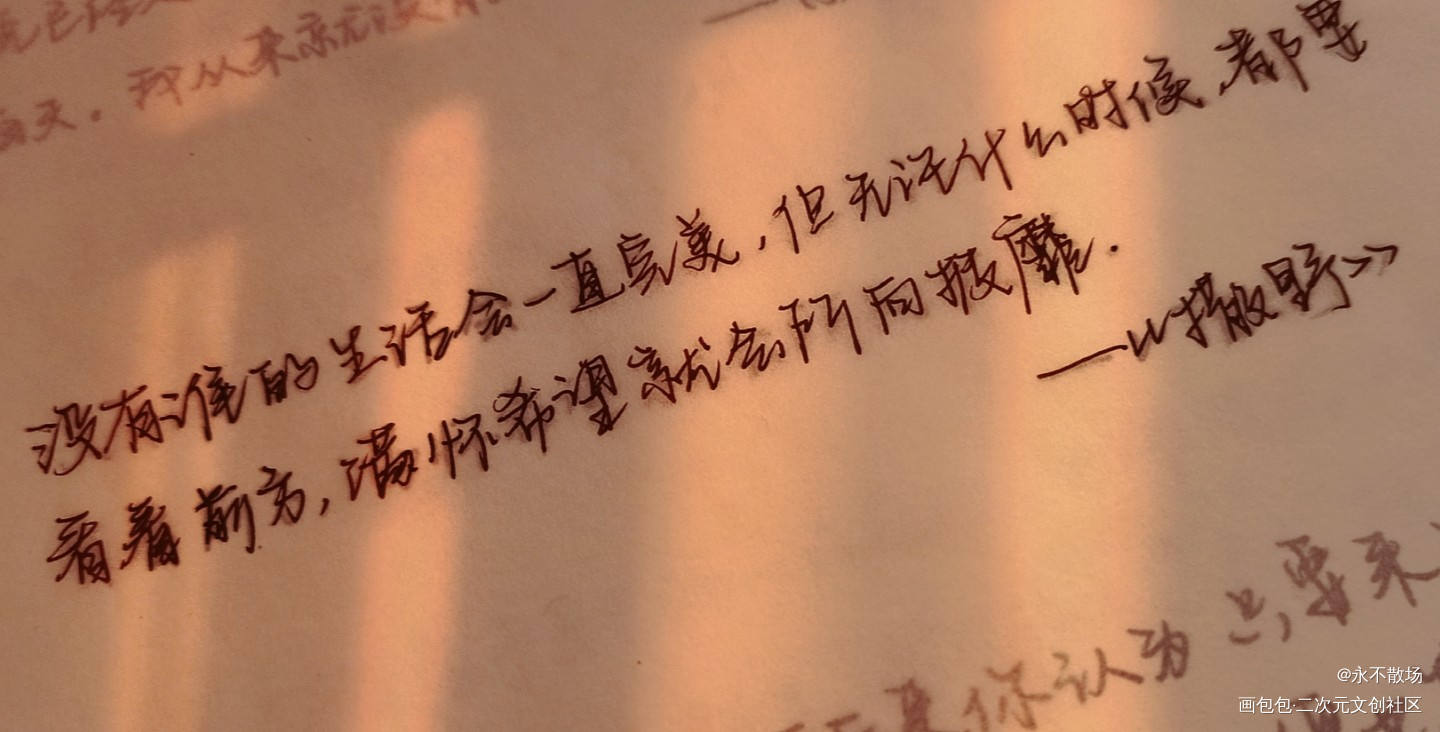 我从来就没
雨天。
没有谁的生活会一直完美，但无论什么时候，都要
看着前方，满怀希望就会所向披靡.
——《撒野》
你认为
只要来
@永不散场
画包包·二次元文创社区